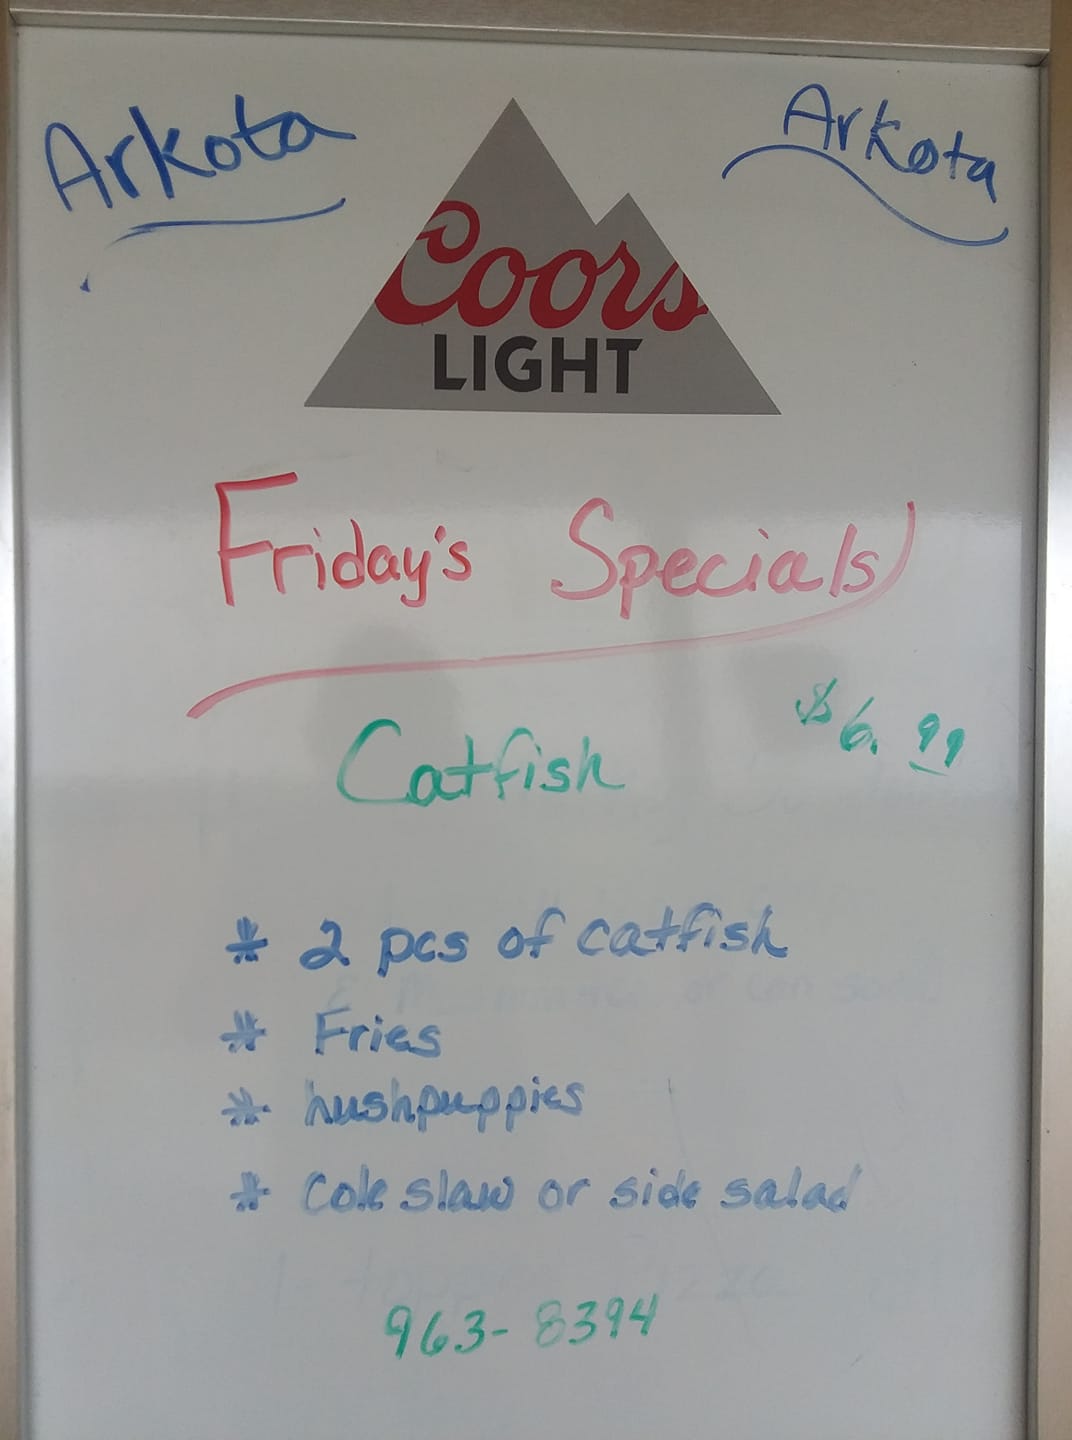 Arkota
Arkota
Coors
LIGHT
Friday's Specials
$6.99
Catfish
* 2 pcs of catfish
* Fries
* hushpuppies
* Cole slaw or side salad
963-8394